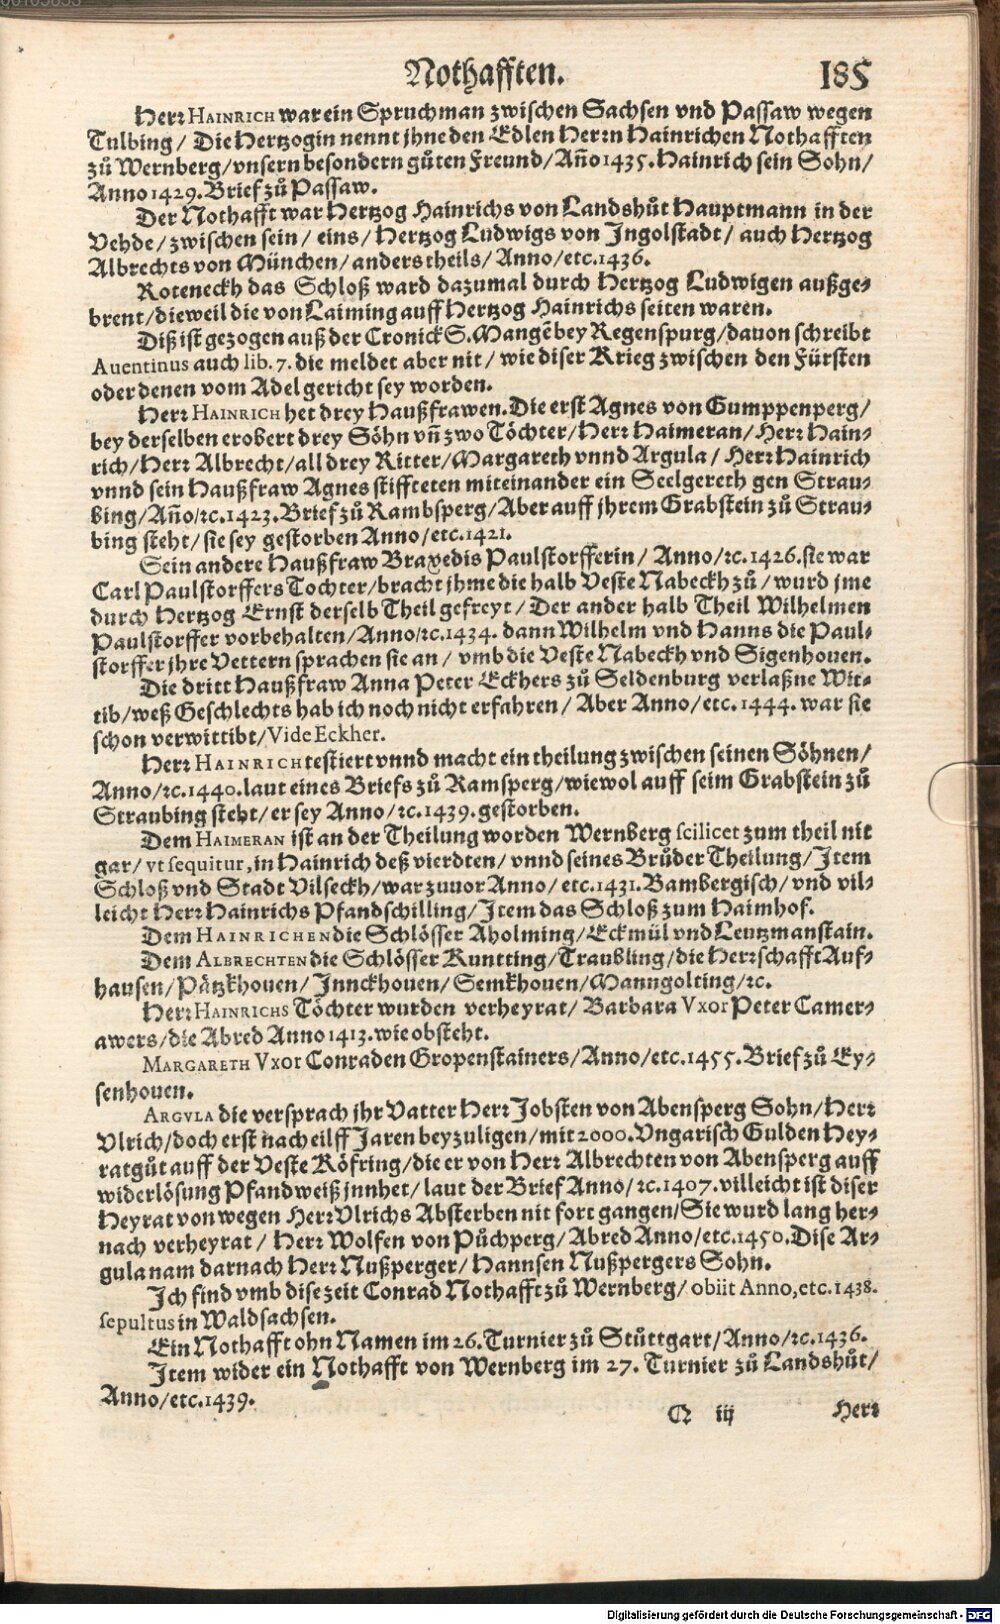 Nothafften. 185
Herr HAINRICH war ein Spruchman zwischen Sachsen vnd Passaw wegen
Tulbing / Die Hertzogin nennt jhne den Edlen Herrn Hainrichen Nothafften
zů Wernberg/vnsern besondern gůten Freund/Año 1435. Hainrich sein Sohn/
Anno 1429. Brief zů Passaw.
Der Nothafft war Hertzog Hainrichs von Landshůt Hauptmann in der
Vehde/zwischen sein/ eins/Hertzog Ludwigs von Ingolstadt/ auch Hertzog
Albrechts von München/anders theils/Anno/etc.1436.
Roteneckh das Schloß ward dazumal durch Hertzog Ludwigen außge-
brent/dieweil die von Laiming auff Hertzog Hainrichs seiten waren.
Diß ist gezogen auß der Cronick S. Mangẽ bey Regenspurg/dauon schreibt
Auentinus auch lib. 7. die meldet aber nit/ wie diser Krieg zwischen den Fürsten
oder denen vom Adel gericht sey worden.
Herr HAINRICH het drey Haußfrawen. Die erst Agnes von Gumppenperg/
bey derselben erobert drey Söhn vñ zwo Töchter/Herr Haimeran/ Herr Hain-
rich/Herr Albrecht/all drey Ritter/Margareth vnnd Argula / Herr Hainrich
vnnd sein Haußfraw Agnes stiffteten miteinander ein Seelgereth gen Strau-
bing/Año/ꝛc.1423. Brief zů Rambsperg/Aber auff jhrem Grabstein zů Strau-
bing steht/ sie sey gestorben Anno/etc.1421.
Sein andere Haußfraw Braxedis Paulstorfferin/ Anno/ꝛc.1426. sie war
Carl Paulstorffers Tochter/bracht jhme die halb Veste Nabeckh zů/ wurd jme
durch Hertzog Ernst derselb Theil gefreyt/ Der ander halb Theil Wilhelmen
Paulstorffer vorbehalten/Anno/ꝛc.1434. dann Wilhelm vnd Hanns die Paul-
storffer jhre Vettern sprachen sie an/ vmb die Veste Nabeckh vnd Sigenhouen.
Die dritt Haußfraw Anna Peter Eckhers zů Seldenburg verlaßne Wit-
tib/weß Geschlechts hab ich noch nicht erfahren/ Aber Anno/etc.1444. war sie
schon verwittibt/Vide Eckher.
Herr HAINRICH testiert vnnd macht ein theilung zwischen seinen Söhnen/
Anno/ꝛc.1440. laut eines Briefs zů Ramsperg/wiewol auff seim Grabstein zů
Straubing steht/er sey Anno/ꝛc.1439. gestorben.
Dem HAIMERAN ist an der Theilung worden Wernberg scilicet zum theil nit
gar/vt sequitur, in Hainrich deß vierdten/ vnnd seines Brůder Theilung/Item
Schloß vnd Stadt Vilseckh/war zuuor Anno/etc.1431. Bambergisch/vnd vil-
leicht Herr Hainrichs Pfandschilling/Item das Schloß zum Haimhof.
Dem HAINRICHEN die Schlösser Aholming/Eckmül vnd Leutzmanstain.
Dem ALBRECHTEN die Schlösser Runtting/Traubling/die Herrschafft Auf-
hausen/Pätzkhouen/Innckhouen/Semkhouen/Manngolting/ꝛc.
Herr HAINRICHS Töchter wurden verheyrat/ Barbara Vxor Peter Camer-
awers/die Abred Anno 1413. wie obsteht.
MARGARETH Vxor Conraden Gropenstainers/Anno/etc.1455. Brief zů Ey-
senhouen.
ARGVLA die versprach jhr Vatter Herr Jobsten von Abensperg Sohn/Herr
Vlrich/doch erst nach eilff Jaren beyzuligen/mit 2000. Vngarisch Gulden Hey-
ratgůt auff der Veste Röfring/die er von Herr Albrechten von Abensperg auff
widerlösung Pfandweiß jnnhet/laut der Brief Anno/ꝛc.1407. villeicht ist diser
Heyrat von wegen Herr Vlrichs Absterben nit fort gangen/Sie wurd lang her-
nach verheyrat/ Herr Wolfen von Půchperg/Abred Anno/etc.1450. Dise Ar-
gula nam darnach Herr Nußperger/Hannsen Nußpergers Sohn.
Ich find vmb dise zeit Conrad Nothafft zů Wernberg/ obiit Anno, etc.1438.
sepultus in Waldsachsen.
Ein Nothafft ohn Namen im 26. Turnier zů Stůttgart/Anno/ꝛc.1436.
Item wider ein Nothafft von Wernberg im 27. Turnier zů Landshůt/
Anno/etc.1439.
Q iij Herr
Digitalisierung gefördert durch die Deutsche Forschungsgemeinschaft - DFG